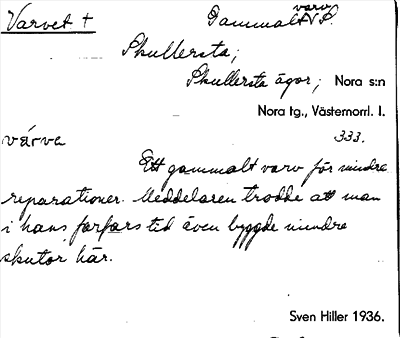 Varvet +
Gammalt varv N.P.
Skullersta;
Skullersta ägor; Nora s:n
Nora tg., Västernorrl. l.
333.
várve
Ett gammalt varv för mindre
reparationer. Meddelaren trodde att man
i hans farfars tid även byggde mindre
skutor här.
Sven Hiller 1936.